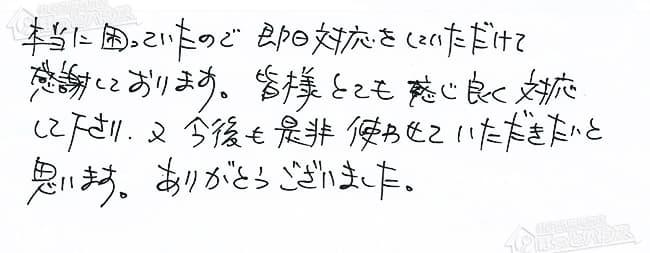 本当に困っていたので 即日対応をしていただけて
感謝しております。皆様とても 感じ良く 対応
して下さり、又 今後も 是非 使わせて いただきたいと
思います。ありがとうございました。